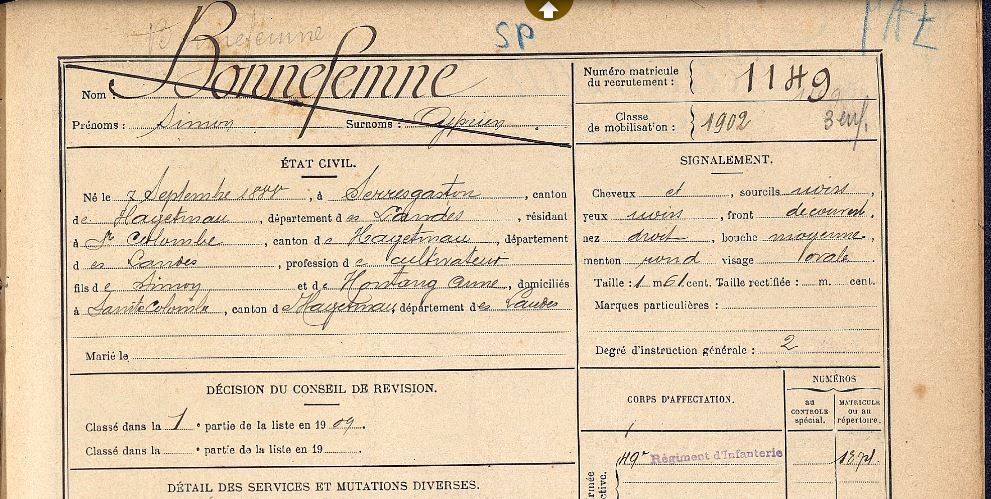 Bonnefemne
SP
PAE
Nom : Bonnefemne
Prénoms : Simon Surnoms : Cyprien
Numéro matricule du recrutement : 1149
Classe de mobilisation : 1902
3 enf.
ÉTAT CIVIL.
Né le 7 Septembre, à Serresgaston, canton
de Hagetmau, département des Landes, résidant
à Ste Colombe, canton de Hagetmau, département
des Landes, profession de cultivateur
fils de Simon et de Hontang Anne, domiciliés
à Sainte Colombe, canton d'Hagetmau, département des Landes
Marié le
SIGNALEMENT.
Cheveux et, sourcils noirs,
yeux noirs, front découvert,
nez droit, bouche moyenne,
menton rond visage ovale
Taille : 1 m 61 cent. Taille rectifiée : m. cent.
Marques particulières :
Degré d'instruction générale : 2
DÉCISION DU CONSEIL DE REVISION.
Classé dans la 1 e partie de la liste en 1909.
Classé dans la e partie de la liste en 19
DÉTAIL DES SERVICES ET MUTATIONS DIVERSES.
CORPS D'AFFECTATION.
NUMÉROS
au CONTROLE spécial.
MATRICULE ou au répertoire.
49e Régiment d'Infanterie
Armée active.